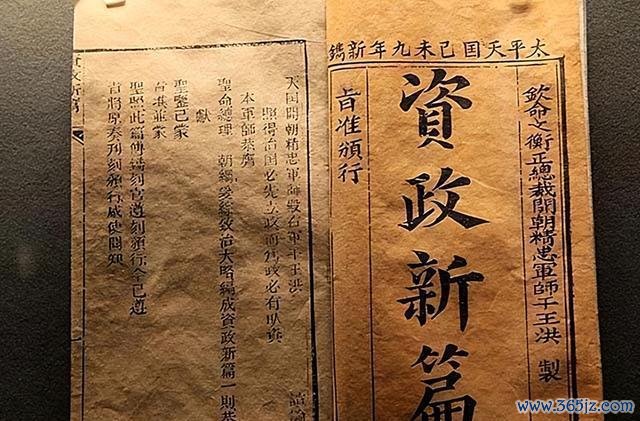 太平天囯己未九年新鐫
欽命文衡正總裁開朝精忠軍師干王洪 製
資政新篇
旨准頒行
天囯開朝精忠軍師殿右軍干王洪 諠諭
照得治囯必先立政而爲政必有取資
本軍師恭膺
聖命總理 朝綱爰綜致治大略編成資政新篇一則恭
獻
聖鑒已蒙
旨准並蒙
聖照此篇傳鐫刻官遵刻頒行今已遵
旨將原奏刊刻頒行咸使聞知
資政新篇
www.365jz.com